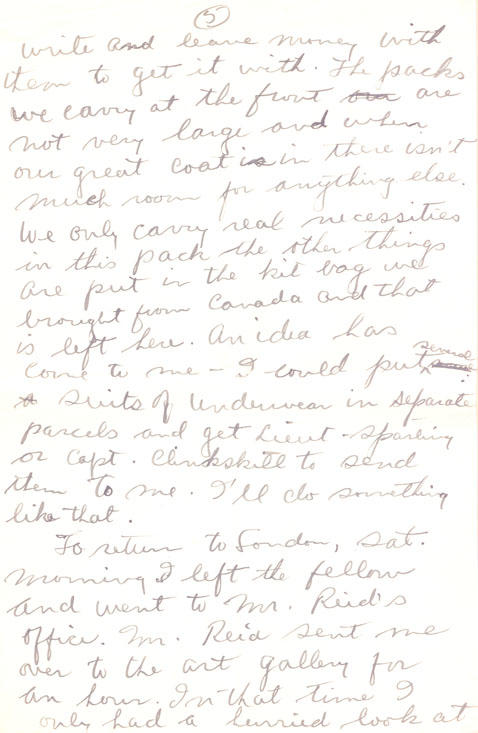 5
write and leave money with
them to get it with. The packs
we carry at the front are
not very large and when
our great coat is in there isn't
much room for anything else.
We only carry real necessities
in this pack the other things
are put in the kit bag we
brought from Canada and that
is left here. An idea has
come to me - I could put several
suits of underwear in separate
parcels and get Lieut - Sparling
or Capt. Clinkskill to send
them to me. I'll do something
like that.
To return to London, Sat.
morning I left the fellow
and went to Mr. Reid's
office. Mr. Reid sent me
over to the art gallery for
an hour. In that time I
only had a hurried look at